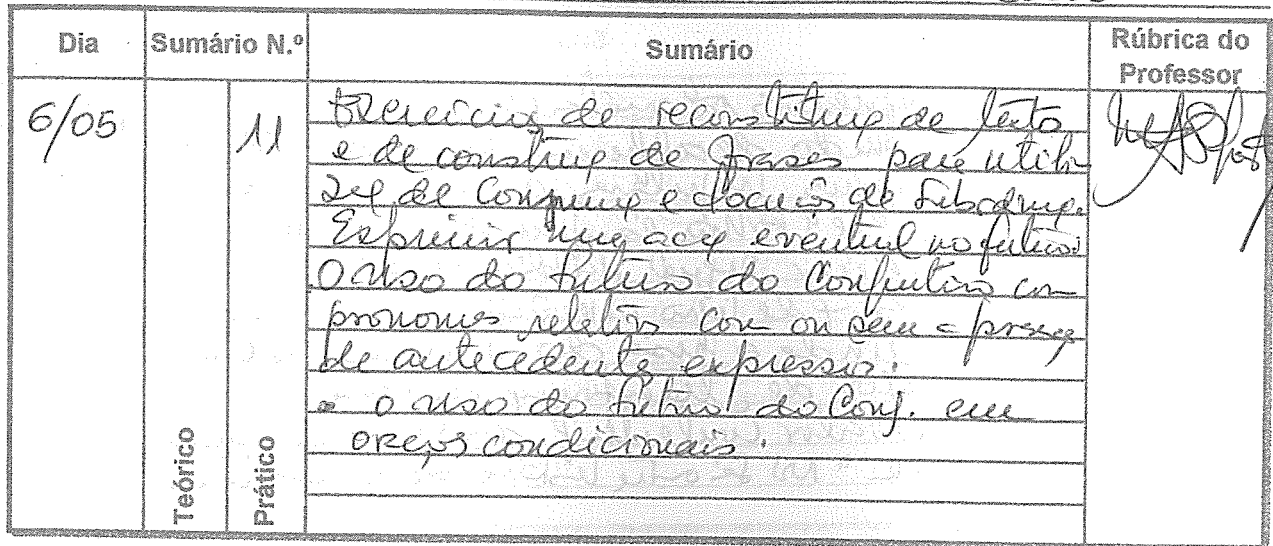 Dia Sumário N.º Sumário Rúbrica do Professor
6/05 11 Exercícios de reconstituição de texto
e de construção de frases para utili-
zação de Conjunções e locuções de Subordinação.
Exprimir uma ação eventual no futuro:
O uso do futuro do Conjuntivo com
pronomes relativos com ou sem a presença
de antecedente expresso.
• O uso do futuro do Conj. em
orações condicionais.
Teórico Prático